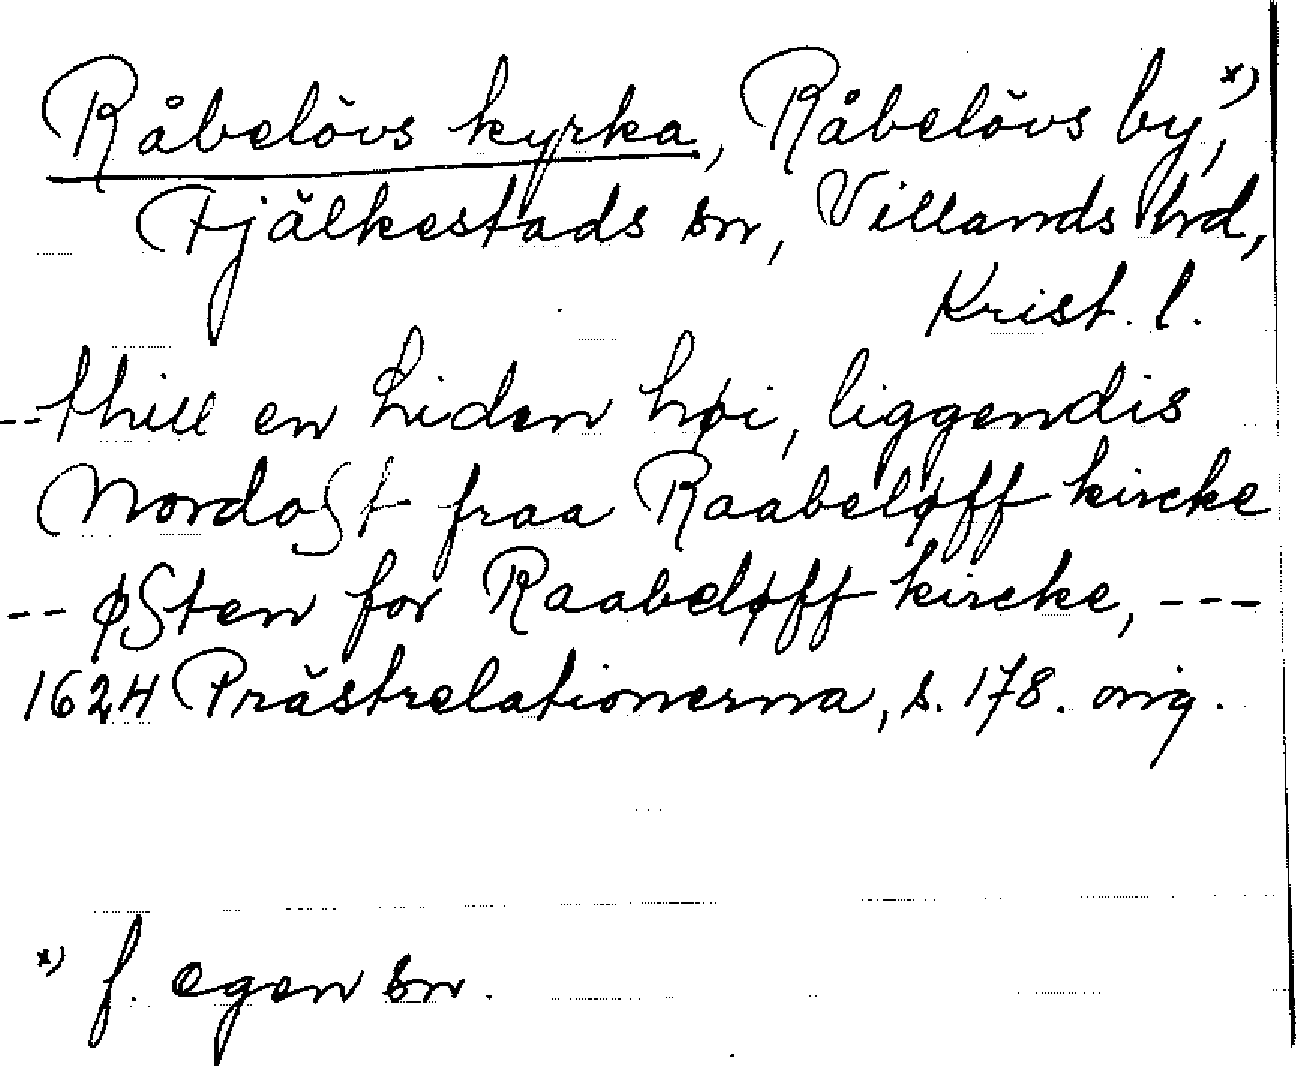 Råbelövs kyrka, Råbelövs by,*)
Fjälkestads sn, Villands hrd,
Krist. l.
--thill en Liden høi, liggendis
Nordost fraa Raabeløff kircke
-- østen for Raabeløff kircke, ---
1624 Prästrelationerna, s. 178. orig.
*) f. egen sn.